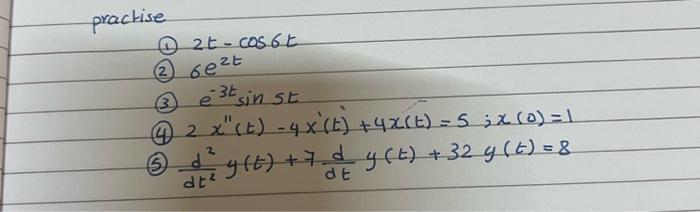 practise
① 2t - cos6t
② 6e^2t
③ e^-3t sin 5t
④ 2 x''(t) - 4x'(t) + 4x(t) = 5 ; x(0) = 1
⑤ d²/dt² y(t) + 7 d/dt y(t) + 32 y(t) = 8